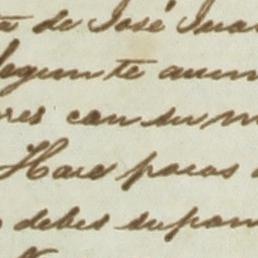 de José Jua
segun te anun
res con su m
Hace pocos
debes supon